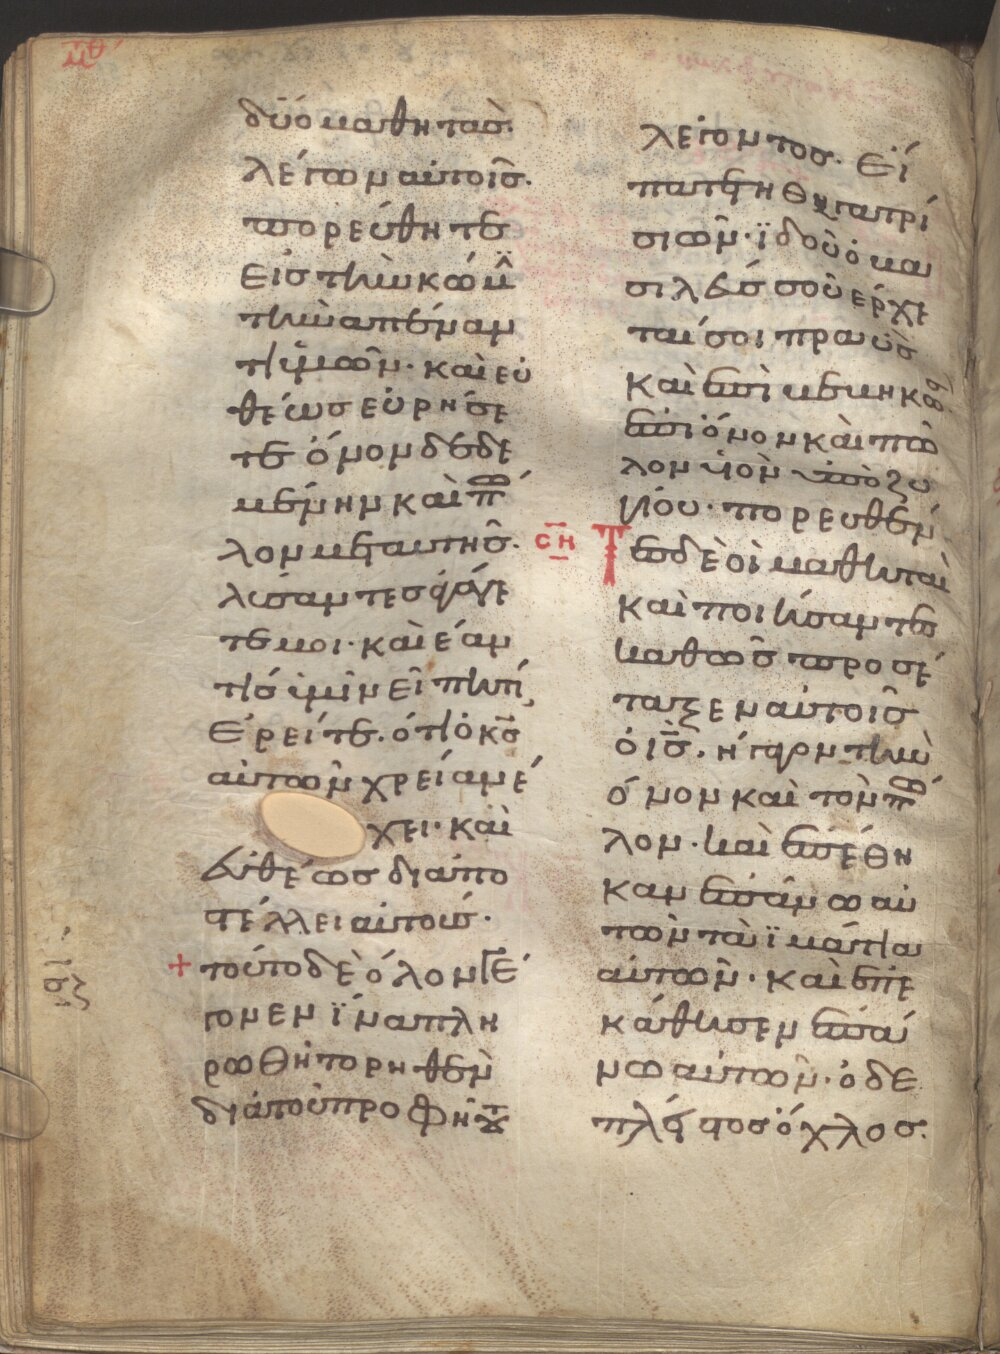 μθ´
δύο μαθητὰσ·
λέγων αὐτοῖσ·
πορεύθητε
εἰσ τὴν κώμ
τὴν ἀπέναν
τι ὑμῶν· καὶ εὐ
θέωσ εὑρήσε
τε ὄνον δεδε
μένην καὶ πῶ
λον μετ αυτησ·
λύσαντεσ ἀγάγε
τε μοι· καὶ ἐάν
τίσ ὑμῖν εἴπη τί,
ἐρεῖτε· ὅτι ὁ κσ
αὐτῶν χρείαν ἔ
χει· καὶ
εὐθέωσ δι ἀπο
στέλλει αὐτούσ·
+ τοῦτο δὲ ὅλον γέ
γονεν ἵνα πλη
ρωθῆ τὸ ρηθὲν
διὰ τοῦ προφήτου
λέγοντοσ· εἴ
πατε τῆ θυγατρὶ
σιών· ἰδοὺ ὁ βα
σιλεύσ σου ἔρχε
ταί σοι πραὺσ
καὶ ἐπιβεβηκὼσ
ἐπὶ ὄνον καὶ πῶ
λον υἱὸν ὑποζυ
γίου· πορευθέν
ση Τεσ δὲ οἱ μαθηταὶ
καὶ ποιήσαντεσ
καθὼσ προσέ
ταξεν αὐτοῖσ
ὁ ισ· ἤγαγον τὴν
ὄνον καὶ τὸν πῶ
λον· καὶ ἐπέθη
καν ἐπάνω αὐ
τῶν τὰ ἱμάτια
αὐτῶν· καὶ ἐπε
κάθισεν ἐπά
νω αὐτῶν· ὁ δὲ
πλεῖστοσ ὄχλοσ·